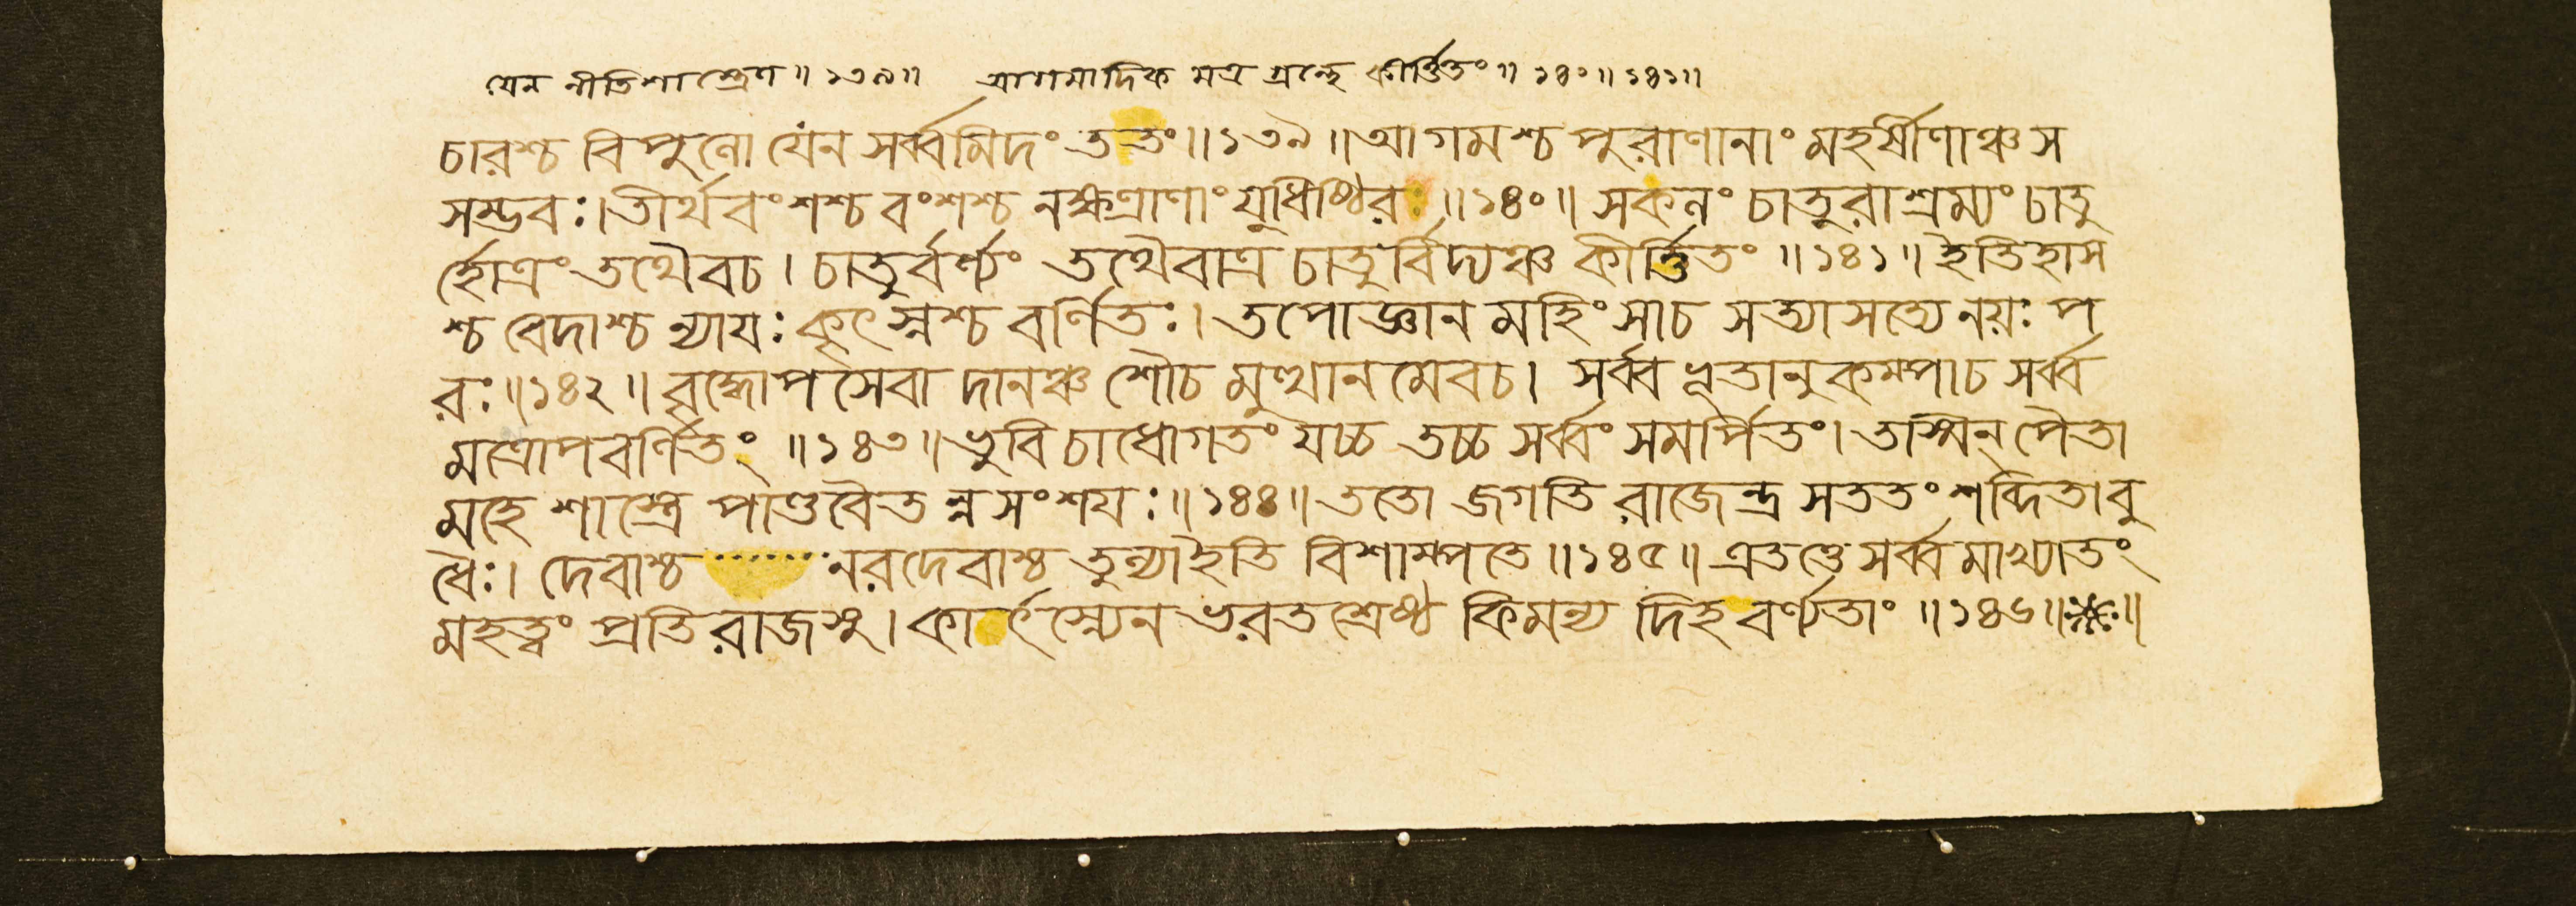 যেন নীতিশাস্ত্রেণ॥১৩৯॥ আগমাদিকমত্র গ্রন্থে কীর্ত্তিতং॥১৪০॥১৪১॥
চারশ্চ বিপুলো যেন সর্ব্বমিদং ততং॥১৩৯॥আগমশ্চ পুরাণানাং মহর্ষীণাঞ্চ স
সম্ভবঃ।তীর্থবংশশ্চ বংশশ্চ নক্ষত্রাণাং যুধিষ্ঠিরঃ॥১৪০॥ সকলং চাতুরাশ্রম্যং চাতু
র্হোত্রং তথৈবচ। চাতুর্বর্ণ্যং তথৈবাত্র চাতুর্বিদ্যঞ্চ কীর্ত্তিতং॥১৪১॥ইতিহাস
শ্চ বেদাশ্চ ন্যায়ঃ কৃৎস্নশ্চ বর্ণিতঃ। তপোজ্ঞানমহিংসাচ সত্যাসত্যে নয়ঃ প
রঃ॥১৪২॥বৃদ্ধোপসেবা দানঞ্চ শৌচমুত্থানমেবচ। সর্ব্বভূতানুকম্পাচ সর্ব্ব
মত্রোপবর্ণিতং॥১৪৩॥ভুবি চাধোগতং যচ্চ তচ্চ সর্ব্বং সমর্পিতং। তস্মিন্ পৈতা
মহে শাস্ত্রে পাণ্ডবৈতন্নসংশয়ঃ॥১৪৪॥ততো জগতি রাজেন্দ্র সততং শব্দিতা বু
ধৈঃ। দেবাশ্চ নরদেবাশ্চ তুল্যাইতি বিশাম্পতে॥১৪৫॥এতত্তে সর্ব্বমাখ্যাতং
মহত্ত্বং প্রতিরাজসু। কার্ৎস্ন্যেন ভরতশ্রেষ্ঠ কিমন্যদিহ বর্ণ্যতাং॥১৪৬॥